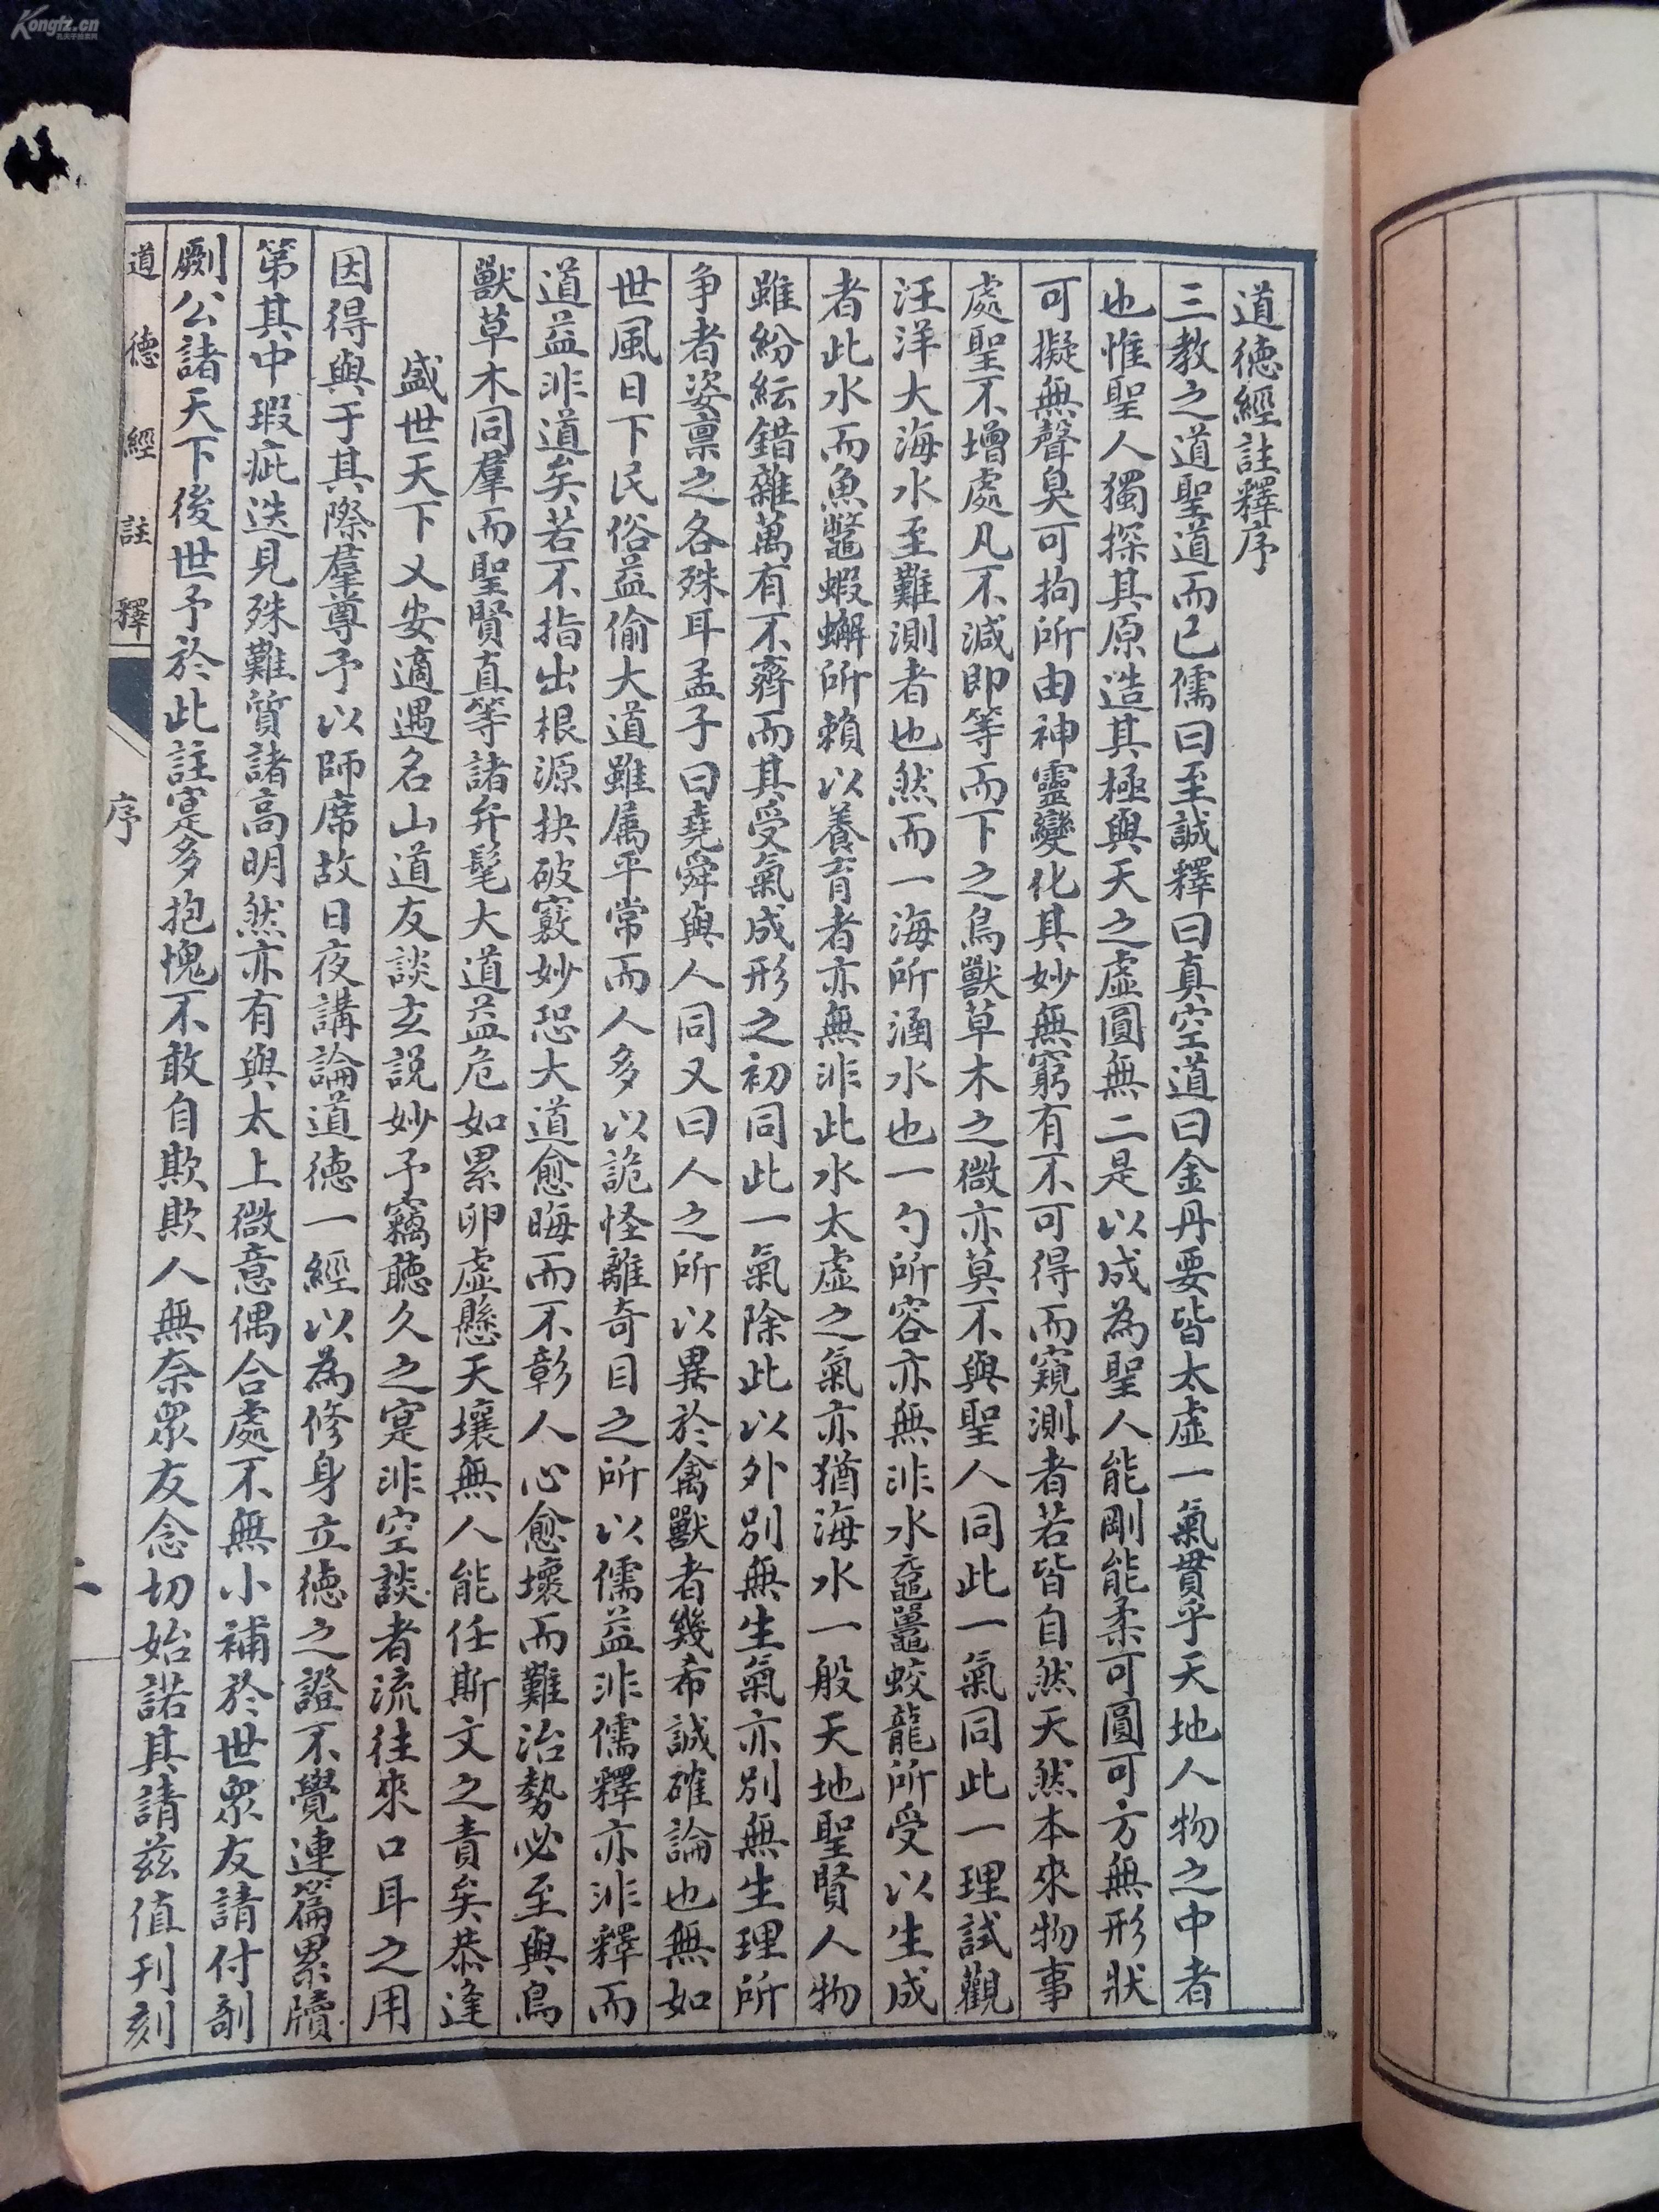 道德經註釋序
三教之道聖道而已儒曰至誠釋曰真空道曰金丹要皆太虛一氣貫乎天地人物之中者
也惟聖人獨探其原造其極與天之虛圓無二是以成為聖人能剛能柔可圓可方無形狀
可擬無聲臭可拘所由神靈變化其妙無窮有不可得而窺測者若皆自然天然本來物事
處聖不增處凡不減即等而下之鳥獸草木之微亦莫不與聖人同此一氣同此一理試觀
汪洋大海水至難測者也然而一海所涵水也一勺所容亦無非水黿鼉蛟龍所受以生成
者此水而魚鼈蝦蠏所賴以養育者亦無非此水太虛之氣亦猶海水一般天地聖賢人物
雖紛紜錯雜萬有不齊而其受氣成形之初同此一氣除此以外別無生氣亦別無生理所
争者姿稟之各殊耳孟子曰堯舜與人同又曰人之所以異於禽獸者幾希誠確論也無如
世風日下民俗益偷大道雖属平常而人多以詭怪離奇目之所以儒益非儒釋亦非釋而
道益非道矣若不指出根源抉破竅妙恐大道愈晦而不彰人心愈壞而難治勢必至與鳥
獸草木同羣而聖賢直等諸弁髦大道益危如累卵虛懸天壤無人能任斯文之責矣恭逢
盛世天下乂安適遇名山道友談玄説妙予竊聽久之寔非空談者流往來口耳之用
因得與于其際羣尊予以師席故日夜講論道德一經以為修身立德之證不覺連篇累牘
第其中瑕疵迭見殊難質諸高明然亦有與太上微意偶合處不無小補於世眾友請付剞
劂公諸天下後世予於此註寔多抱愧不敢自欺欺人無奈眾友念切始諾其請茲值刊刻
道德經註釋
序
Kongfz.cn